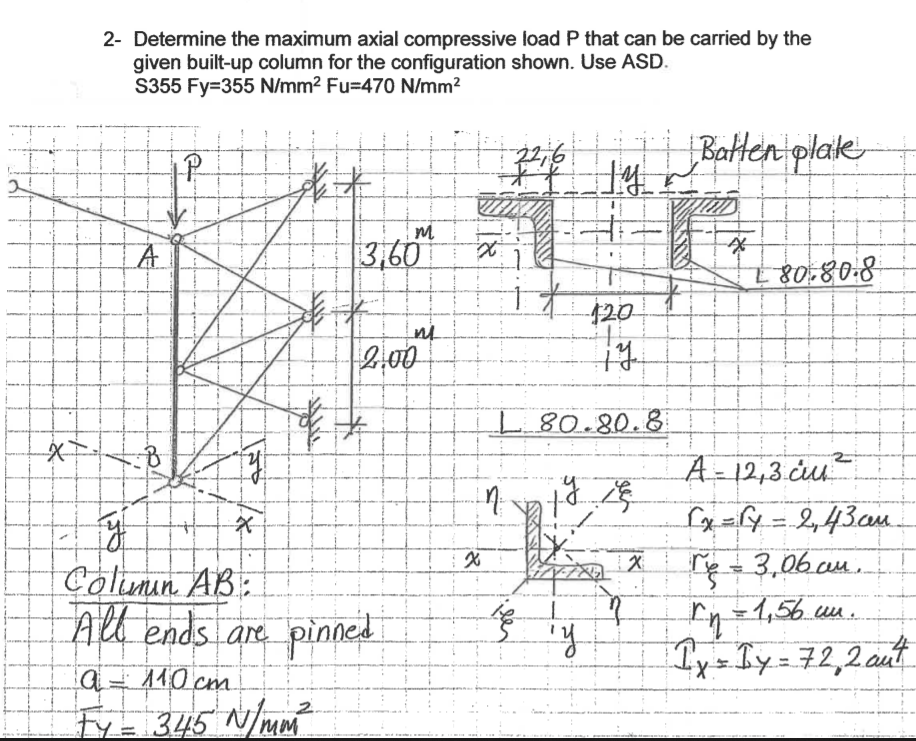 2- Determine the maximum axial compressive load P that can be carried by the
given built-up column for the configuration shown. Use ASD.
S355 Fy=355 N/mm² Fu=470 N/mm²
P
A
3,60 m
2.00 m
x
B
y
y
x
Column AB:
All ends are pinned
a = 110 cm
Fy = 345 N/mm²
22,6
y
Batten plate
x
x
L 80.80.8
120
y
L 80.80.8
η
y
ξ
x
x
ξ
y
η
A = 12,3 cm²
rx = ry = 2,43 cm.
rξ = 3,06 cm.
rη = 1,56 cm.
Ix = Iy = 72,2 cm⁴